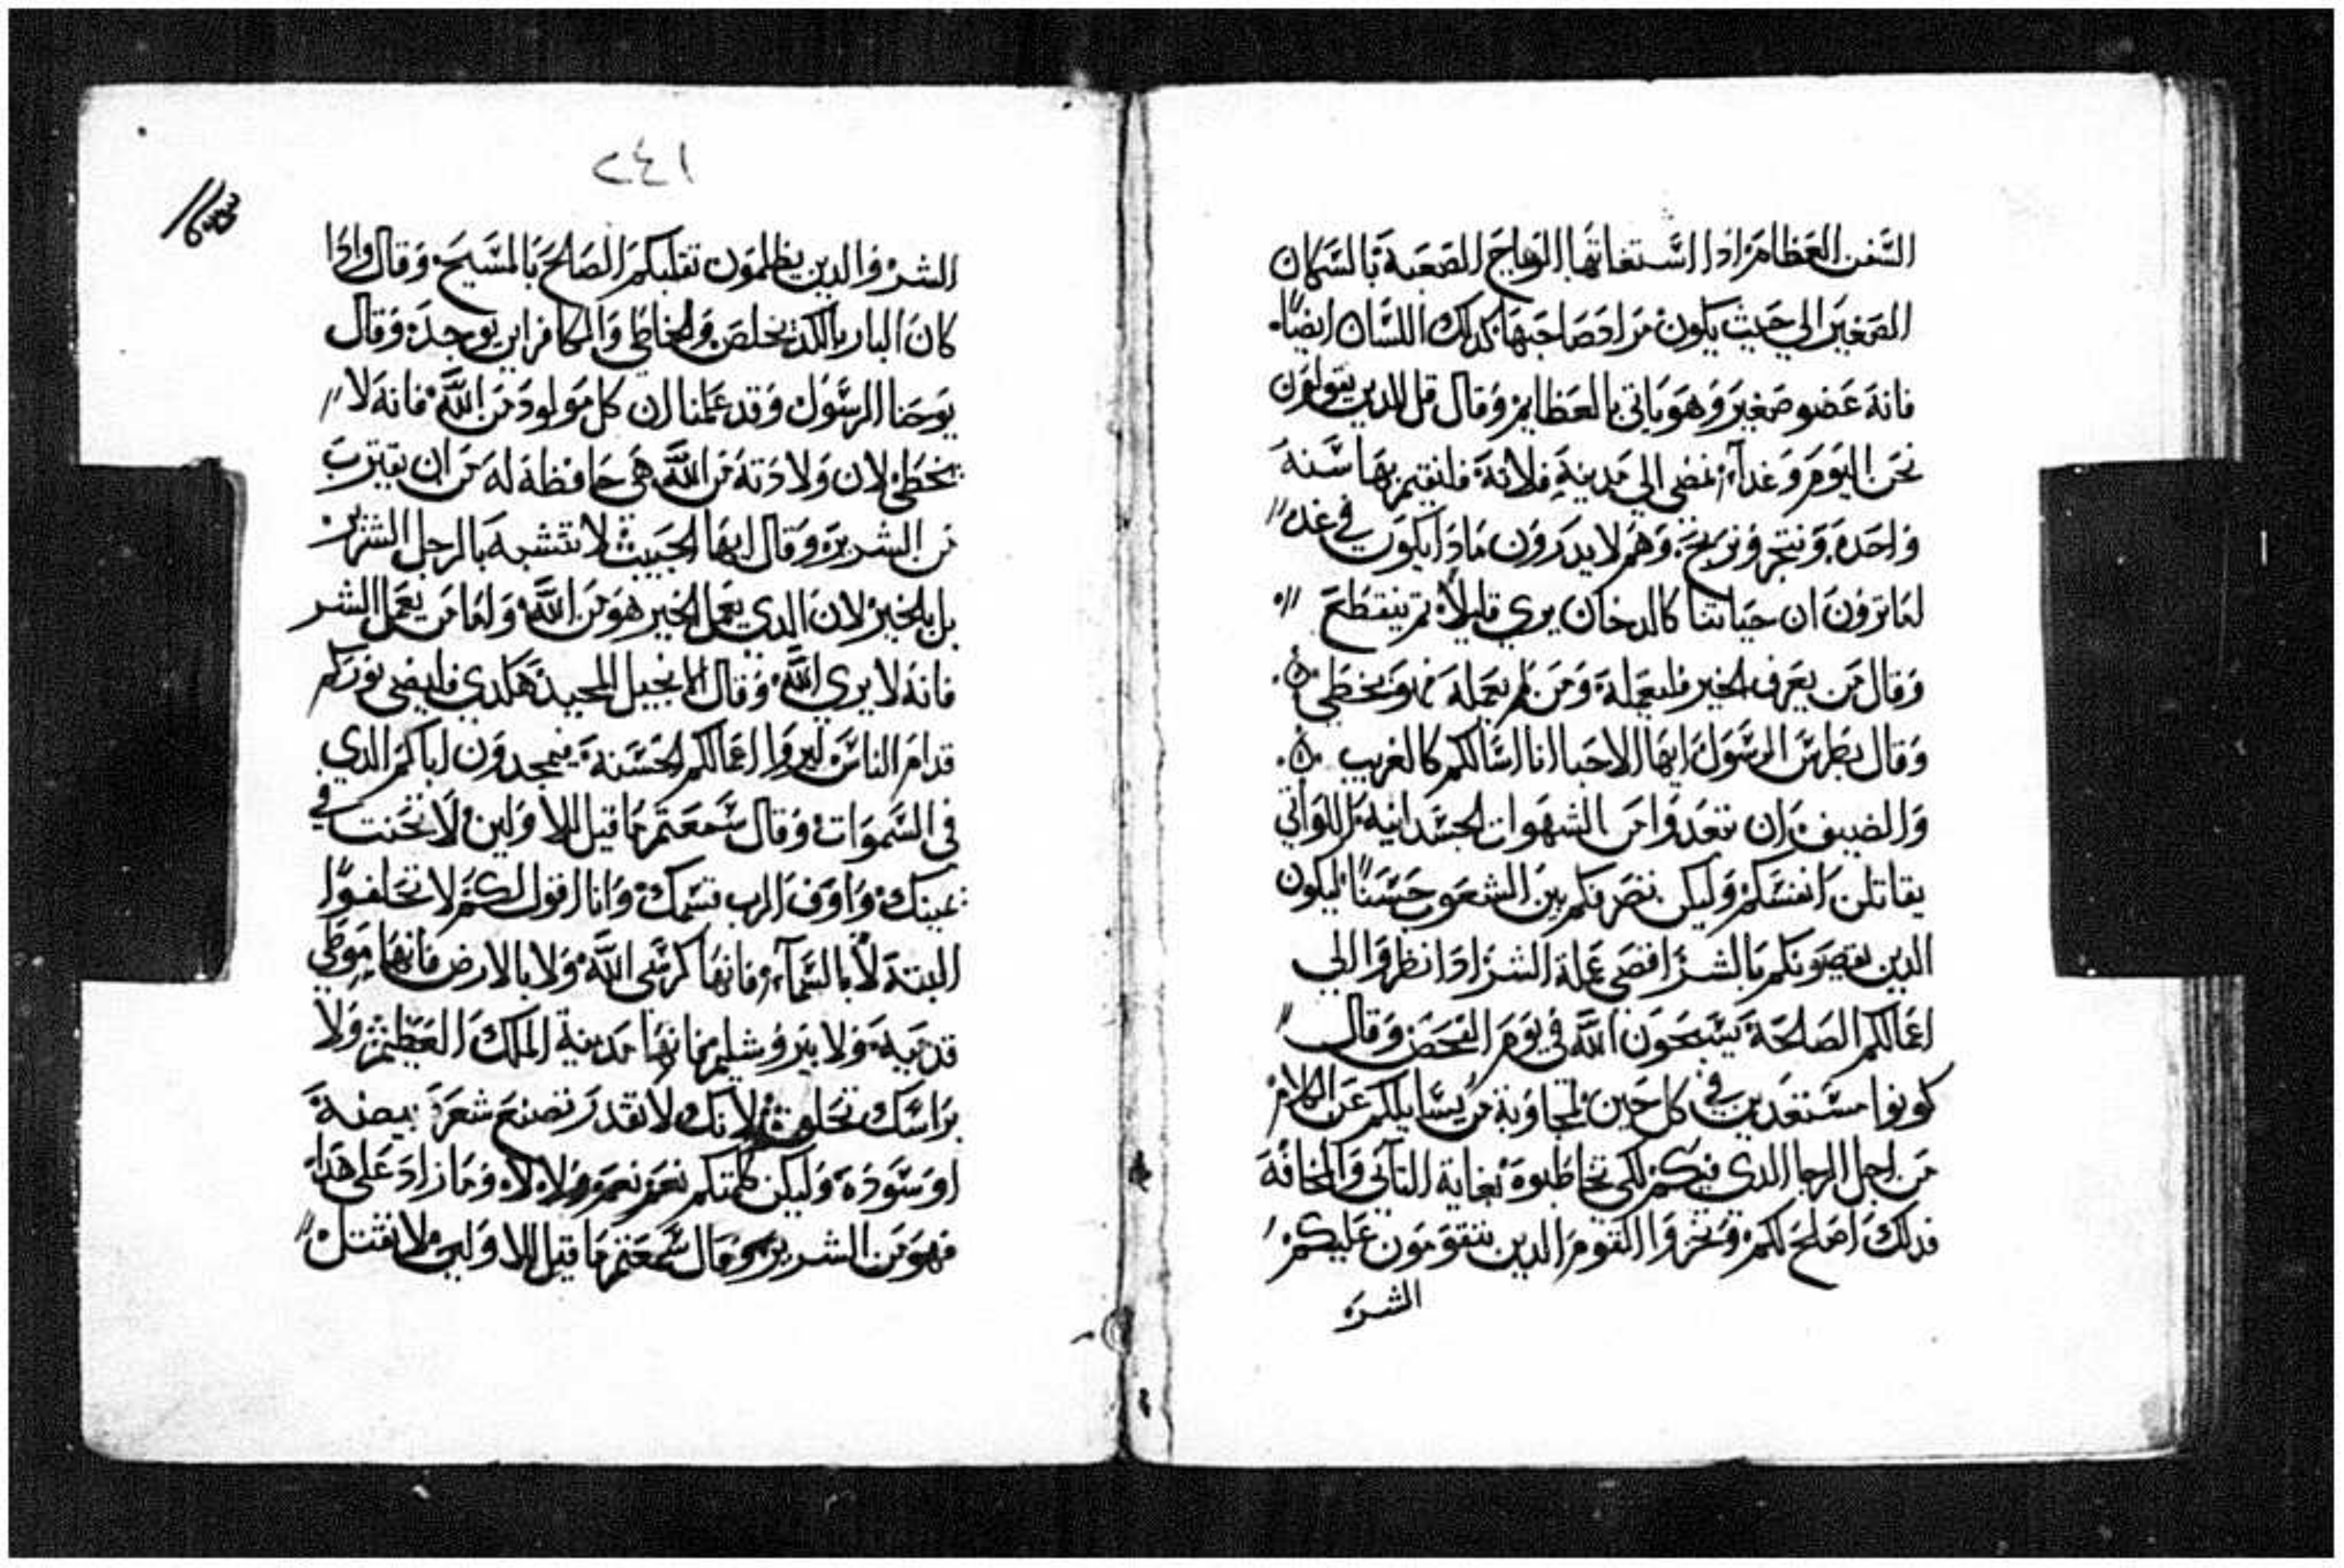 السفن العظام اذا استغاثها الرياح الصعبة بالسكان
الصغير الي حيث يكون مراد صاحبها كدلك اللسان ايضا
فانه عضو صغير وهو ياتي بالعظايم وقال قل للدين يقولون
نحن اليوم وغدآ نمضي الي مدينة فلانة فلنقيم بها سنه
واحده ونتجر ونربح وهم لا يدرون مادا يكون في غد
لعاترون ان حياتنا كالدخان يري قليلاً ثم ينقطع
وقال من يعرف الخير فليعمله ومن لم يعمله فهو يخطي
وقال بطرس الرسول ايها الاحبا انا اسالكم كالغريب
والضيف ان تبعدوا من الشهوات الجسدانيه اللواتي
يقاتلن انفسكم وليكن تصرفكم بين الشعوب حسناً ليكون
الدين يقصونكم بالشر افتضي عملة الشر ادا نظروا الي
اعمالكم الصالحة يسبحون الله في يوم الفحص وقال
كونوا مستعدين في كل حين لمجاوبة من يسايلكم عن الكلام
من اجل الرجا الدي فيكم لكي تخاطبوه بغاية التاني والمخافة
فدلك اصلح لكم وتخزوا القوم الدين يتقومون عليكم
الشر
٢٤١
الشر والدين يظلمون تقلبكم الصالح بالمسيح وقال وادا
كان البار بالكد يخلص والخاطي والكافر اين يوجد وقال
يوحنا الرسول وقد علمنا ان كل مولود من الله فانه لا
يخطي لان ولادته من الله هي حافظة له من ان يقترب
من الشرير وقال ايها الحبيب لا تتشبه بالرجل الشرير
بل بالخير لان الدي يعمل الخير هو من الله واما من يعمل الشر
فانه لا يري الله وقال الانجيل المجيد هكدي فليضي نوركم
قدام الناس ليروا اعمالكم الحسنة فيمجدون اباكم الدي
في السموات وقال سمعتم ما قيل للاولين لا تحنت في
يمينك واوف الرب قسمك وانا اقول لكم لا تحلفوا
البتة لا بالسمآء فانها كرسي الله ولا بالارض فانها موطي
قدميه ولا بيروشليم فانها مدينة الملك العظيم ولا
براسك تحلف لانك لا تقدر تصنع شعرة بيضة
او سودة وليكن كلمتكم نعم نعم ولا لا وما زاد على هدا
فهو من الشرير وقال سمعتم ما قيل للاولين لا تقتل